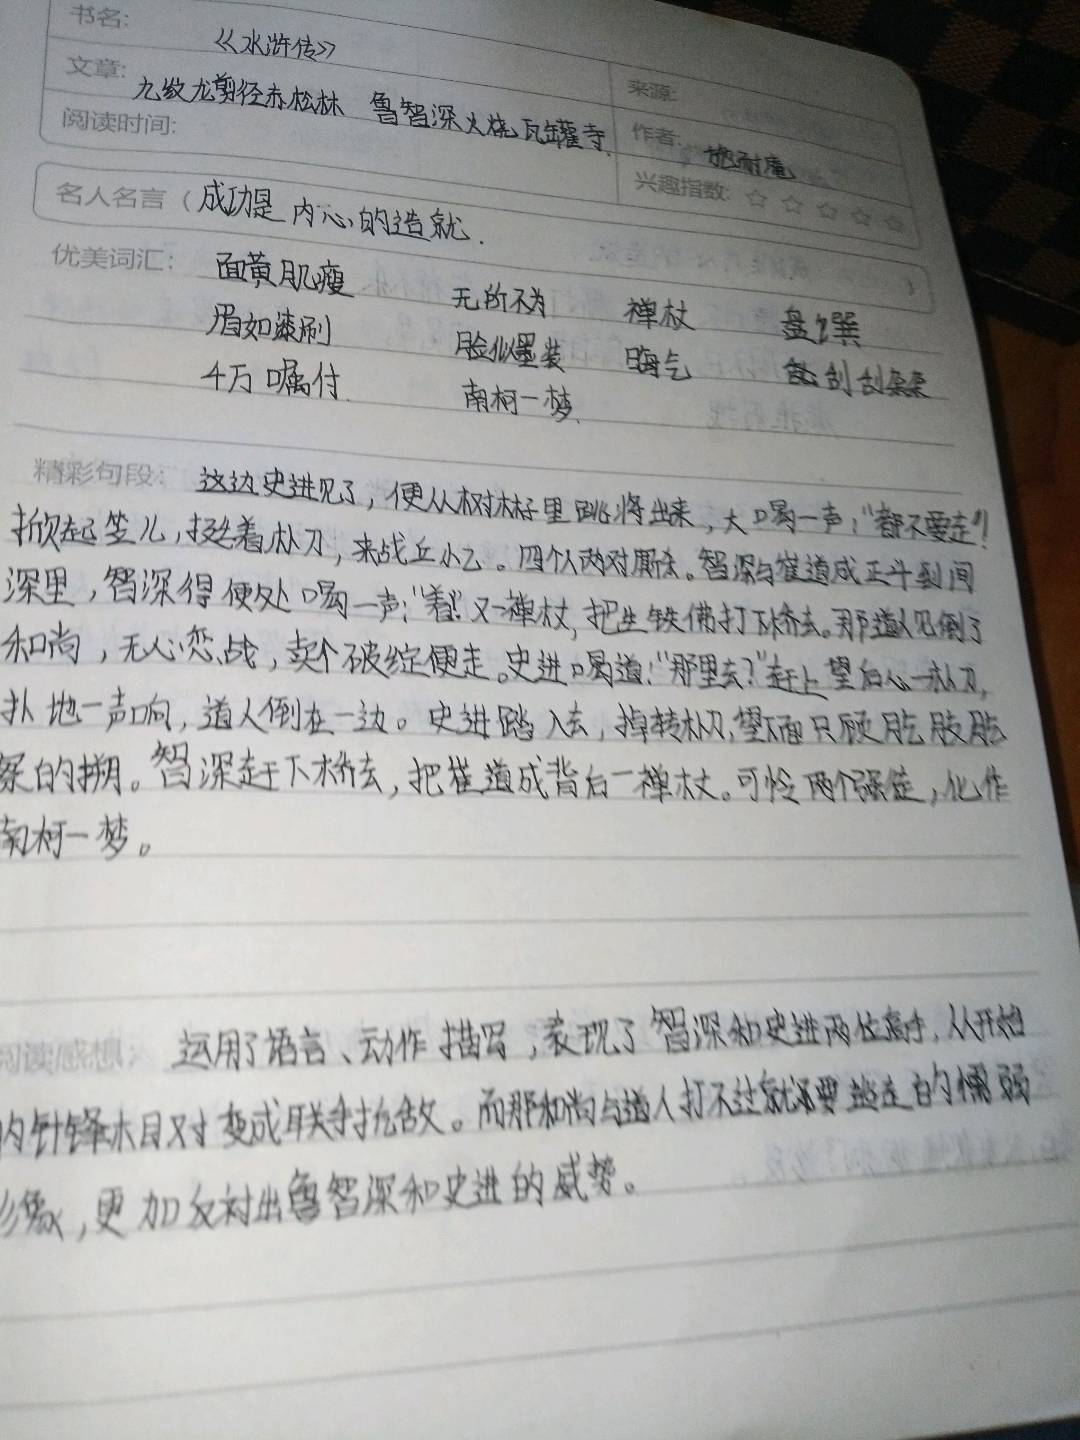 书名: 《水浒传》
文章: 九纹龙剪径赤松林 鲁智深火烧瓦罐寺
来源:
阅读时间:
作者: 施耐庵
兴趣指数: ☆ ☆ ☆ ☆ ☆
名人名言（成功是内心的造就.）
优美词汇: 面黄肌瘦 无所不为 禅杖 盘馔
眉如漆刷 脸似墨装 晦气
千万嘱付 南柯一梦
精彩句段: 这边史进见了，便从树林子里跳将出来，大喝一声:"都不要走"!
掀起笠儿，挺着朴刀，来战丘小乙。四个人两对厮杀。智深与崔道成正斗到间
深里，智深得便处喝一声:"着!"又一禅杖，把生铁佛打下桥去。那道人见倒了
和尚，无心恋战，卖个破绽便走。史进喝道:"那里去?"赶上望后心一朴刀，
扑地一声响，道人倒在一边。史进踏入去，掉转朴刀，望下面只顾肐肢肐
察的搠。智深赶下桥去，把崔道成背后一禅杖。可怜两个强徒，化作
南柯一梦。
阅读感想: 运用了语言、动作描写，表现了智深和史进两位高手，从开始
的针锋相对变成联手抗敌。而那和尚与道人打不过就要逃走的懦弱
形象，更加反衬出鲁智深和史进的威势。